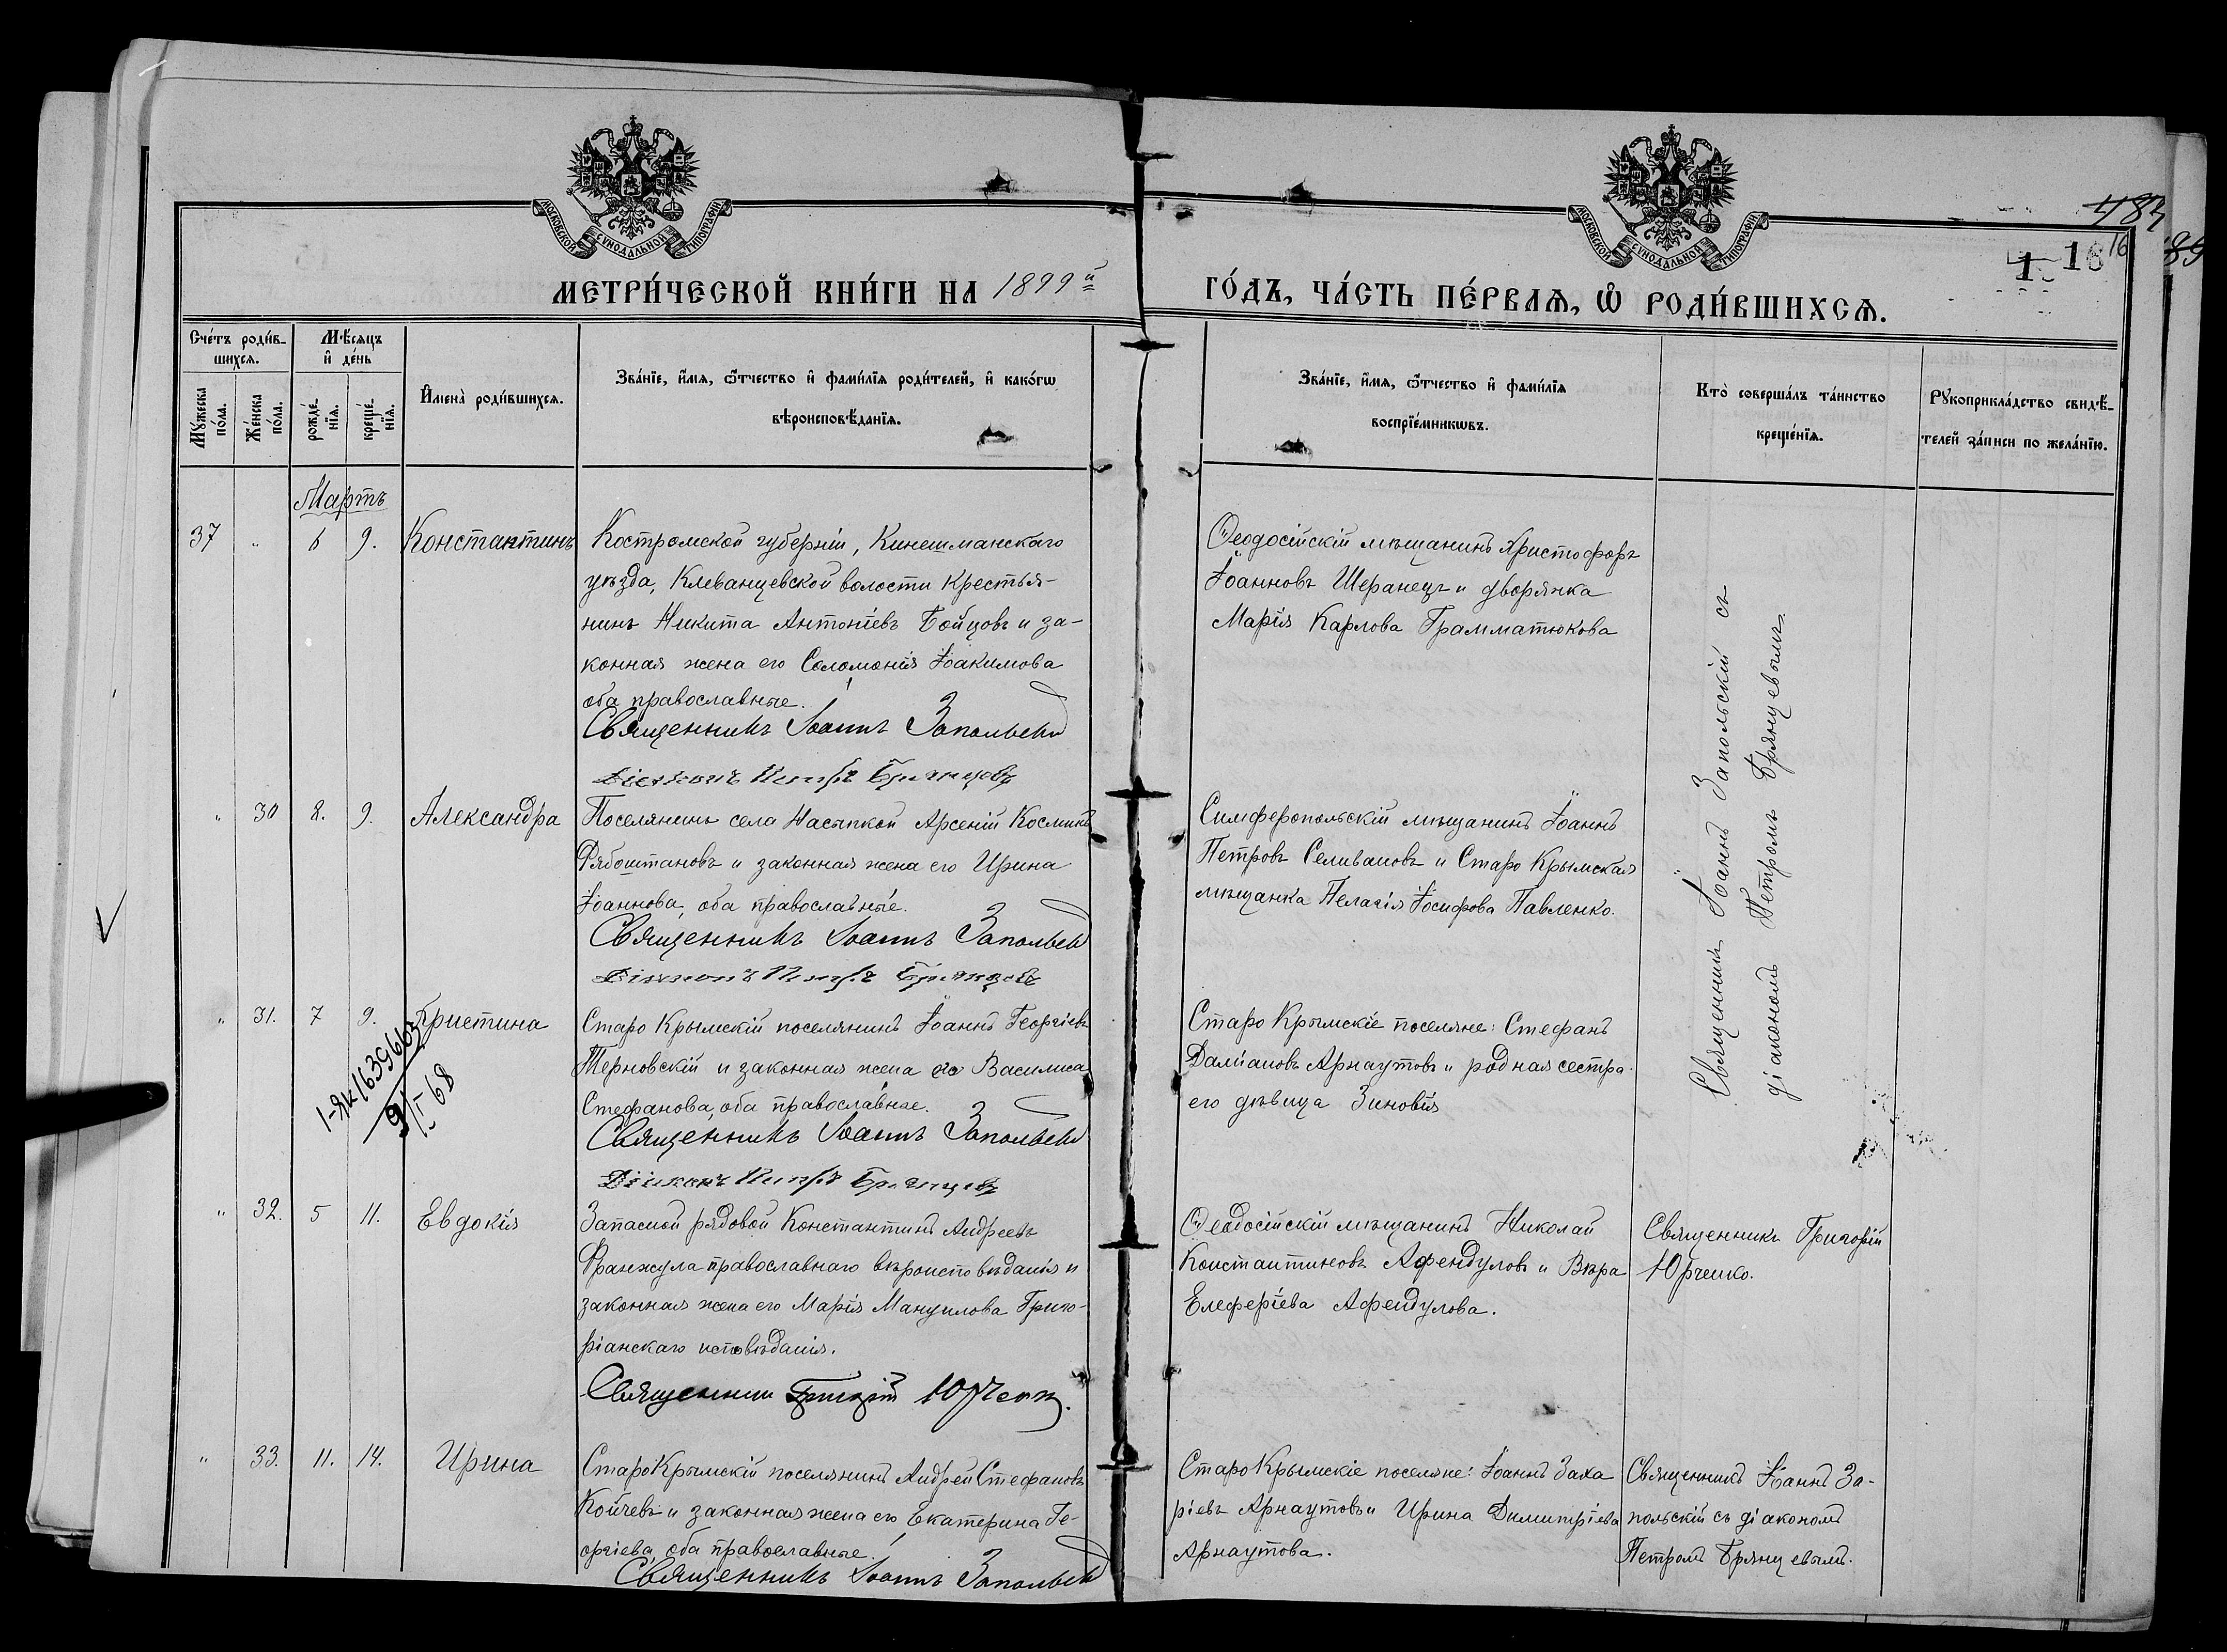 МОСКОВСКОЙ СѴНОДАЛЬНОЙ ТИПОГРАФІИ
МОСКОВСКОЙ СѴНОДАЛЬНОЙ ТИПОГРАФІИ
483
16
89
1 18
МЕТРИ́ЧЕСКОЙ КНИ́ГИ НА 1899й
ГО́ДЪ, ЧА́СТЬ ПЕ́РВАѦ, Ѡ҆ РОДИ́ВШИХСѦ.
Сче́тъ роди́в-
шихсѧ.
Мꙋ́жеска по́ла.
Же́нска по́ла.
Мѣ́сѧцъ
и҆ де́нь
рожде́-
нїѧ.
креще́-
нїѧ.
И҆мена̀ роди́вшихсѧ.
Зва́нїе, и҆́мѧ, ѻ҆́тчество и҆ фами́лїѧ роди́телей, и҆ како́гѡ
вѣроисповѣ́данїѧ.
Зва́нїе, и҆́мѧ, ѻ҆́тчество и҆ фами́лїѧ
воспрїе́мникѡвъ.
Кто̀ соверша́лъ та́инство
креще́нїѧ.
Рꙋкоприкла́дство свидѣ́-
телей за́писи по жела́нїю.
Мартъ
37 " 6 9. Константинъ
Костромской губерніи, Кинешманскаго
уѣзда, Клеванцевской волости крестья-
нинъ Никита Антоніевъ Бойцовъ и за-
конная жена его Соломонія Іоакимова
оба православные.
Священникъ Іоаннъ Запольскій
Діаконъ Петръ Брянцевъ
Ѳеодосійскій мѣщанинъ Христофоръ
Іоанновъ Шеранецъ и дворянка
Марія Карлова Грамматюкова
Священникъ Іоаннъ Запольскій съ
діакономъ Петромъ Брянцевымъ.
" 30 8. 9. Александра
Поселянинъ села Насыпкой Арсеній Косминъ
Рябоштановъ и законная жена его Ирина
Іоаннова, оба православные.
Священникъ Іоаннъ Запольскій
Діаконъ Петръ Брянцевъ
Симферопольскій мѣщанинъ Іоаннъ
Петровъ Селивановъ и Старо Крымская
мѣщанка Пелагія Іосифова Павленко.
" 31. 7 9. Христина
1-ЯК 1639663
9/I-68
Старо Крымскій поселянинъ Іоаннъ Георгіевъ
Терновскій и законная жена его Василиса
Стефанова, оба православные.
Священникъ Іоаннъ Запольскій
Діаконъ Петръ Брянцевъ
Старо Крымскіе поселяне: Стефанъ
Даміановъ Арнаутовъ и родная сестра
его дѣвица Зиновія
" 32. 5 11. Евдокія
Запасной рядовой Константинъ Андреевъ
Франжула православнаго вѣроисповѣданія и
законная жена его Марія Мануилова Григо-
ріанскаго исповѣданія.
Священникъ Григорій Юрченко.
Ѳеодосійскій мѣщанинъ Николай
Константиновъ Афендуловъ и Вѣра
Елеферіева Афендулова.
Священникъ Григорій
Юрченко.
" 33. 11. 14. Ирина
Старо Крымскій поселянинъ Андрей Стефановъ
Койчевъ и законная жена его Екатерина Ге-
оргіева, оба православные.
Священникъ Іоаннъ Запольскій
Старо Крымскіе поселяне: Іоаннъ Заха
ріевъ Арнаутовъ и Ирина Димитріева
Арнаутова.
Священникъ Іоаннъ За-
польскій съ діакономъ
Петромъ Брянцевымъ.